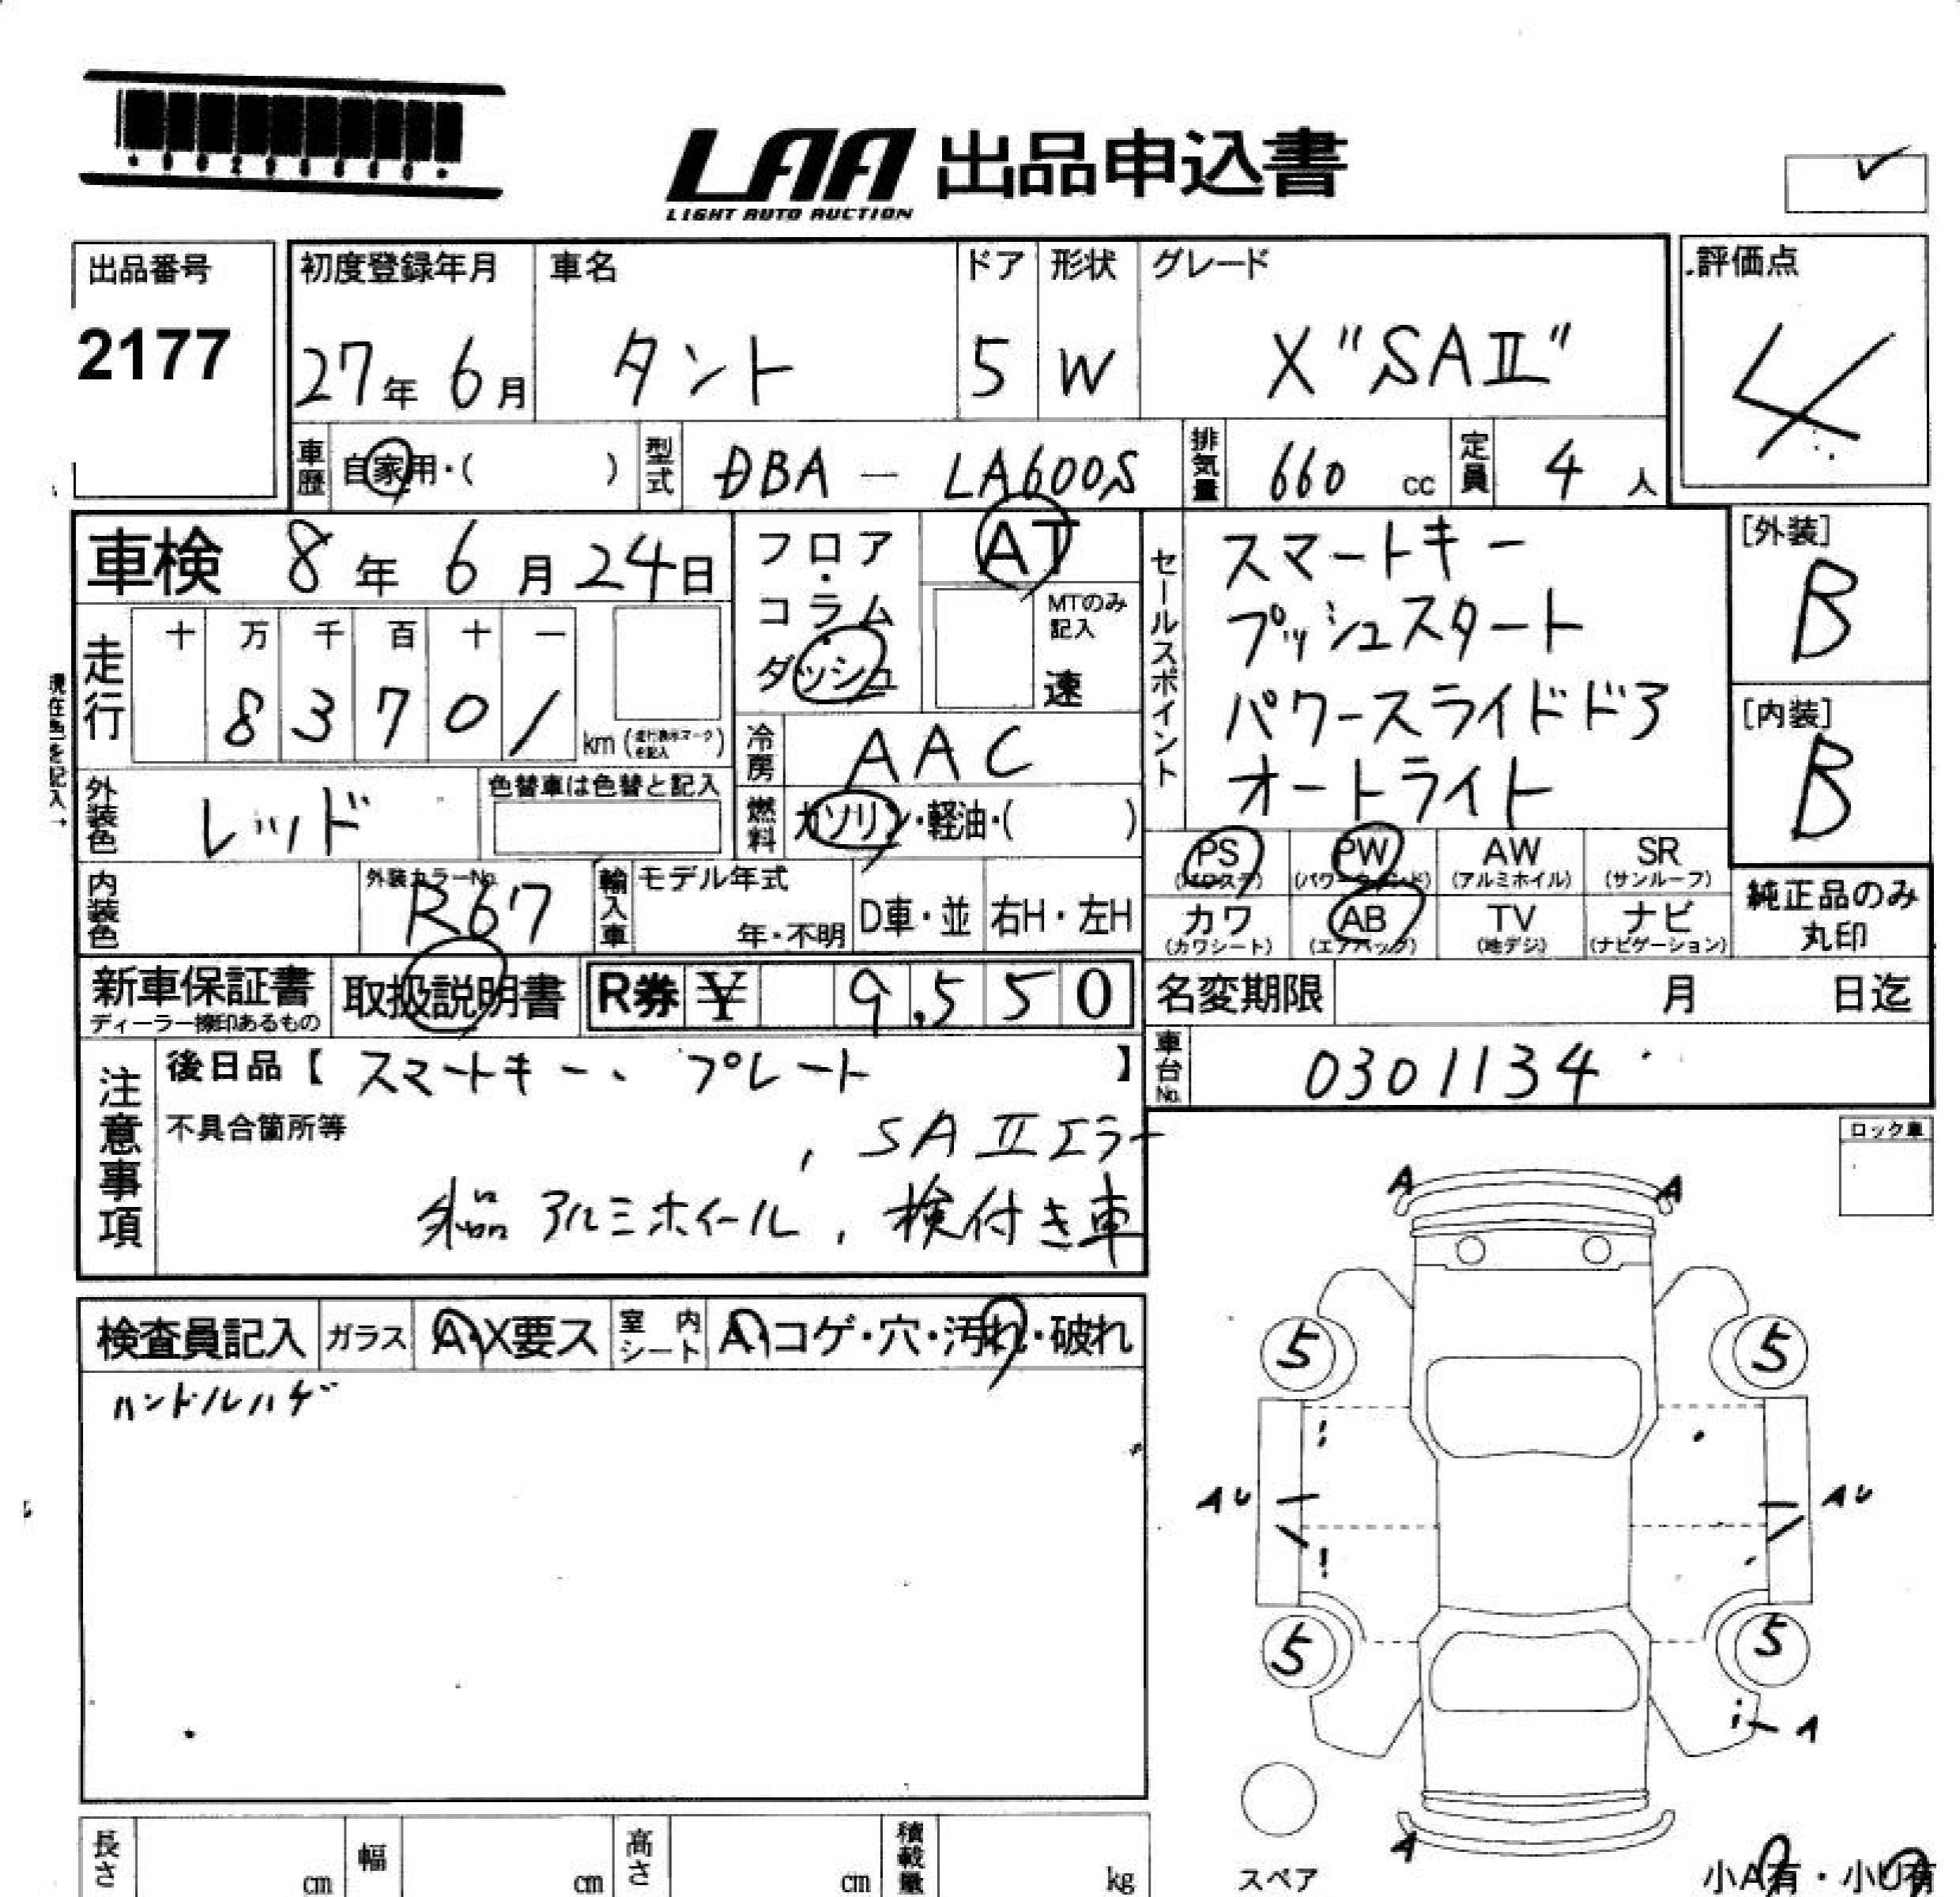 LAA 出品申込書
LIGHT AUTO AUCTION
出品番号
2177
初度登録年月 車名 ドア 形状 グレード
27年 6月 タント 5 W X "SAⅡ"
.評価点
4
車歴 自家用・( ) 型式 DBA — LA600S 排気量 660 cc 定員 4 人
車検 8年 6月 24日
フロア・コラム・ダッシュ
AT
MTのみ記入
速
セールスポイント
スマートキー
プッシュスタート
パワースライドドア
オートライト
[外装]
B
[内装]
B
走行 十 万 千 百 十 一
8 3 7 0 1 km (走行表示マークを記入)
現在色を記入→
冷房 AAC
外装色 レッド 色替車は色替と記入
燃料 ガソリン・軽油・( )
内装色 外装カラーNo. R67
輸入車 モデル年式 年・不明 D車・並 右H・左H
PS (パワステ) PW (パワーウインド) AW (アルミホイル) SR (サンルーフ)
カワ (カワシート) AB (エアバッグ) TV (地デジ) ナビ (ナビゲーション)
純正品のみ
丸印
新車保証書 取扱説明書 R券 ¥ 9,550
ディーラー捺印あるもの
名変期限 月 日迄
車台No. 0301134
注意事項
後日品【スマートキー、プレート】
不具合箇所等
, SAⅡエラー
アルミホイール, 検付き車
ロック車
検査員記入 ガラス A・X要ス 室内シート A・コゲ・穴・汚れ・破れ
ハンドルハゲ
A A
5 5
AU AU
5 5
A
A
スペア
小A有・小U有
長さ cm 幅 cm 高さ cm 積載量 kg